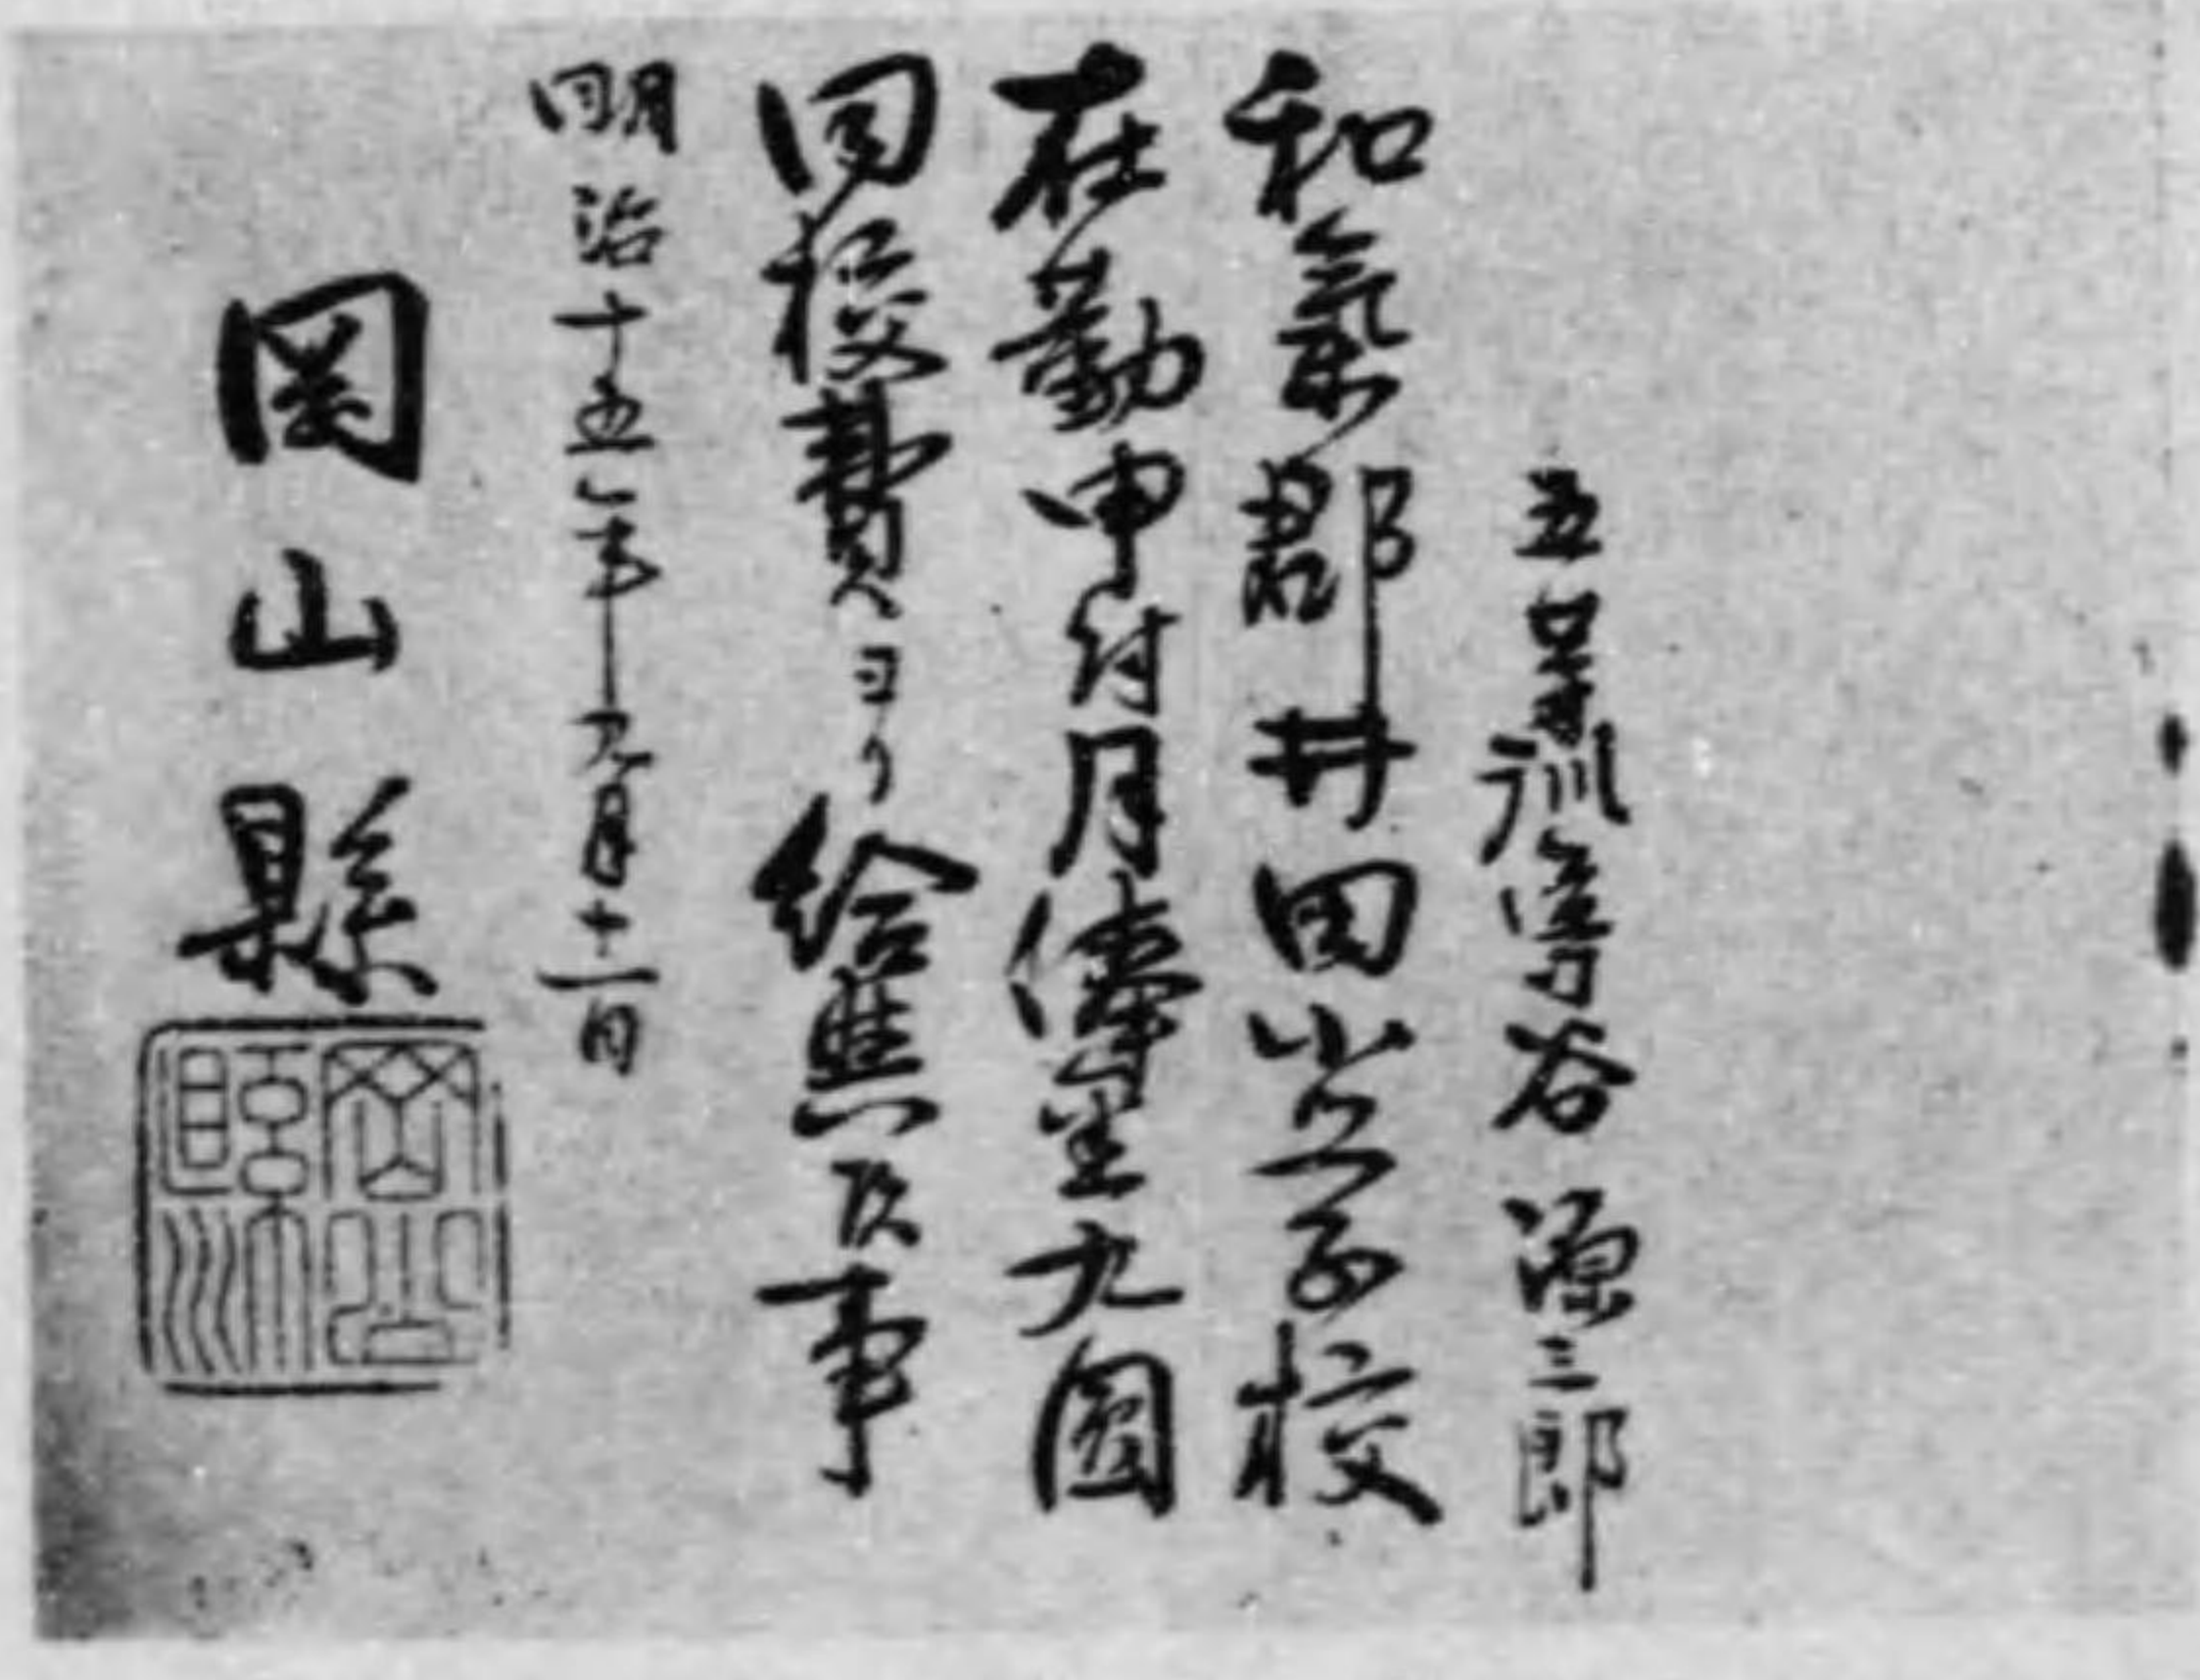 五等訓導 谷 源三郎
和氣郡井田小学校
在勤申付月俸金九圓
同校費ヨリ給與候事
明治十五年九月十一日
岡山縣
岡山縣